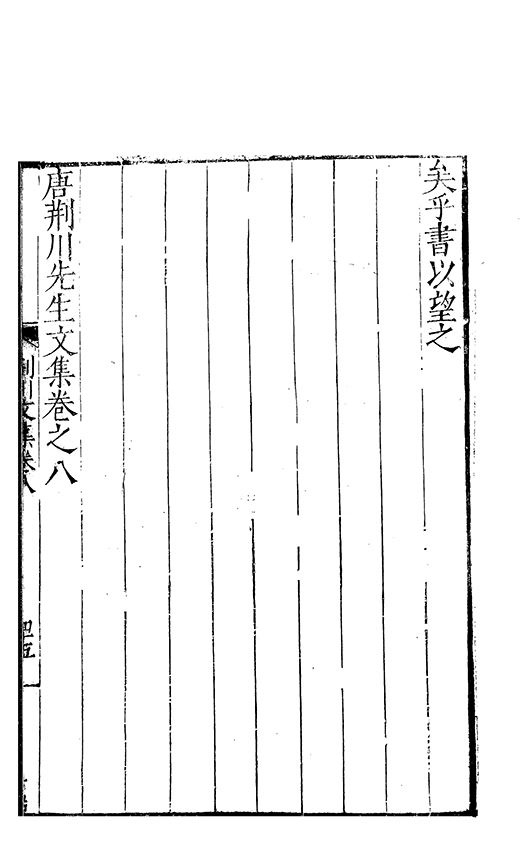 矣乎書以望之
唐荆川先生文集卷之八
荆川文集卷八